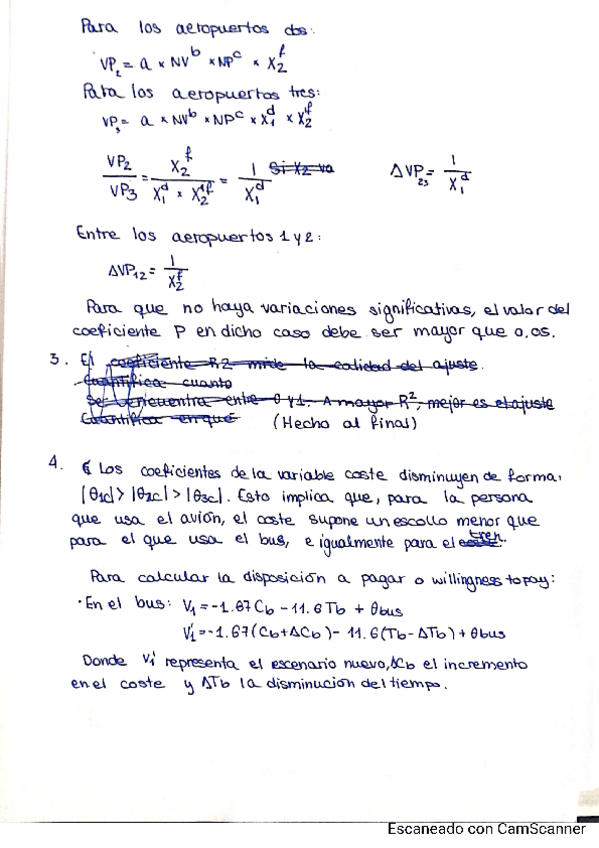 Para los aeropuertos dos:
VP₂ = a × NV^b × NP^c × X₂^f
Para los aeropuertos tres:
VP₃ = a × NV^b × NP^c × X₁^d × X₂^f
VP₂/VP₃ = X₂^f / (X₁^d × X₂^f) = 1/X₁^d Si X₂ va ΔVP₂₃ = 1/X₁^d
Entre los aeropuertos 1 y 2:
ΔVP₁₂ = 1/X₂^f
Para que no haya variaciones significativas, el valor del
coeficiente P en dicho caso debe ser mayor que 0,05.
3. El coeficiente R2 mide la calidad del ajuste.
Cuantifica cuanto
Se encuentra entre 0 y 1. A mayor R², mejor es el ajuste
Cuantifica en qué (Hecho al final)
4. Los coeficientes de la variable coste disminuyen de forma:
|θ1c| > |θ2c| > |θ3c|. Esto implica que, para la persona
que usa el avión, el coste supone un escollo menor que
para el que usa el bus, e igualmente para el tren.
Para calcular la disposición a pagar o willingness to pay:
· En el bus: V₁ = -1.67Cb - 11.6Tb + θbus
V₁' = -1.67(Cb+ΔCb) - 11.6(Tb-ΔTb) + θbus
Donde V₁' representa el escenario nuevo, ΔCb el incremento
en el coste y ΔTb la disminución del tiempo.
Escaneado con CamScanner